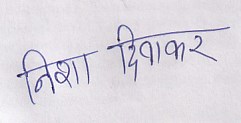 निशा दिवाकर